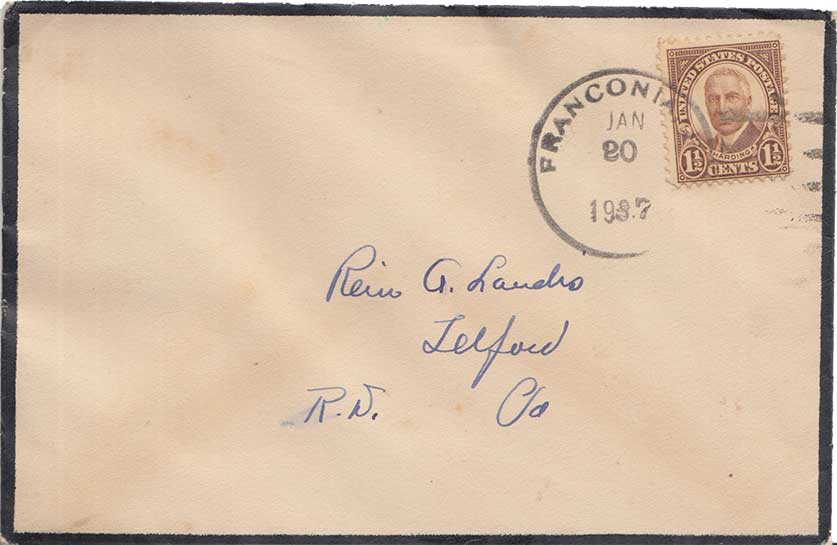 FRANCONIA
JAN
20
1937
UNITED STATES POSTAGE
HARDING
1½ CENTS 1½
A. Landis
Telford
Pa